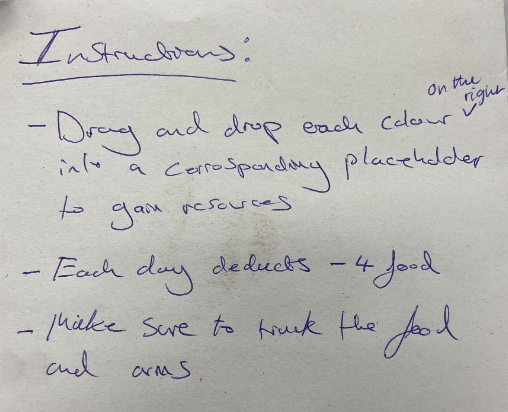 Instructions:
- Drag and drop each colour on the right
into a corrosponding placeholder
to gain resources
- Each day deducts - 4 food
- Make sure to track the food
and arms.